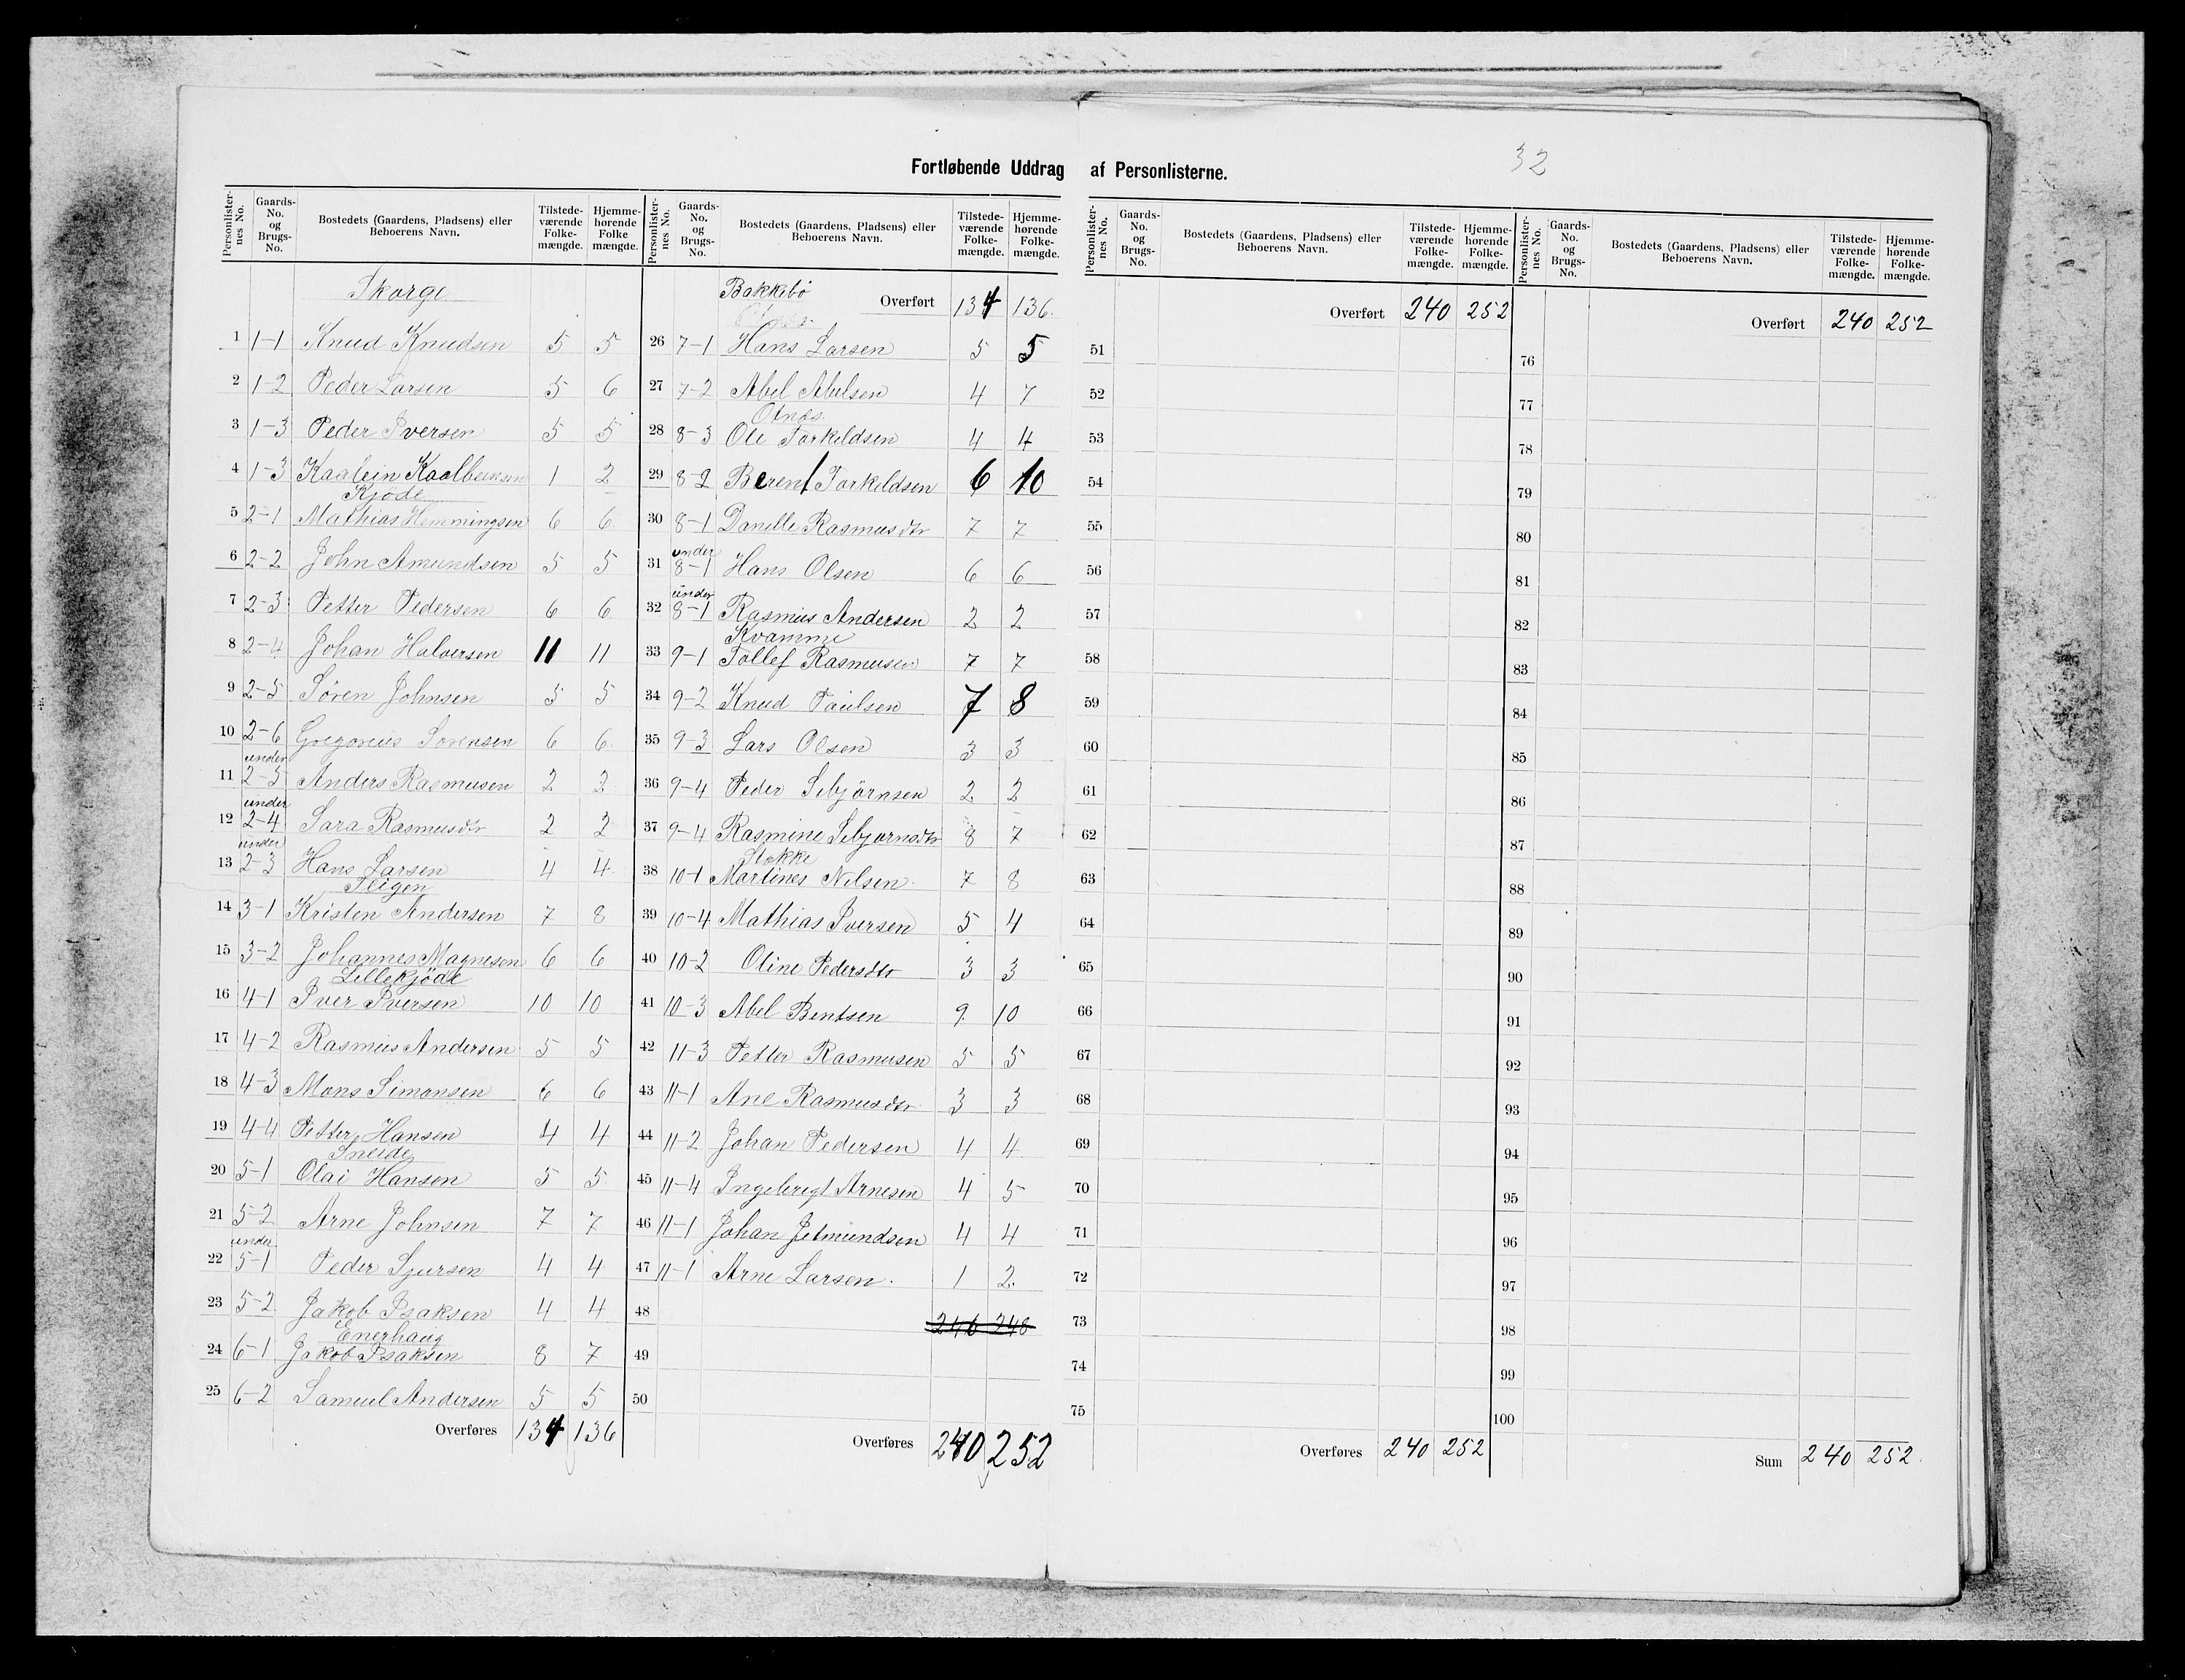 32
Fortløbende Uddrag af Personlisterne.
Personlisternes No. Gaards-No. og Brugs-No. Bostedets (Gaardens, Pladsens) eller Beboerens Navn. Tilstedeværende Folkemængde. Hjemmehørende Folkemængde.
Skorge
1 1-1 Knud Knudsen 5 5
2 1-2 Peder Larsen 5 6
3 1-3 Peder Iversen 5 5
4 1-3 1 2
Kjøde
5 2-1 Mathias Hemmingsen 6 6
6 2-2 John Amundsen 5 5
7 2-3 Petter Pedersen 6 6
8 2-4 Johan Halversen 11 11
9 2-5 Sören Johnsen 5 5
10 2-6 Gregorius Sörensen 6 6
under
11 2-5 Anders Rasmusen 2 2
under
12 2-4 Sara Rasmusdtr 2 2
under
13 2-3 Hans Larsen 4 4
14 3-1 Kristen Andersen 7 8
15 3-2 Johannes Magnesen 6 6
Lillekjöde
16 4-1 Iver Iversen 10 10
17 4-2 Rasmus Andersen 5 5
18 4-3 Mons Simonsen 6 6
19 4-4 Petter Hansen 4 4
Sneide
20 5-1 Olai Hansen 5 5
21 5-2 Arne Johnsen 7 7
under
22 5-1 Peder Sjursen 4 4
23 5-2 Jakob Isaksen 4 4
Enerhaug
24 6-1 Jakob Isaksen 8 7
25 6-2 Samuel Andersen 5 5
Overføres 134 136
Personlisternes No. Gaards-No. og Brugs-No. Bostedets (Gaardens, Pladsens) eller Beboerens Navn. Tilstedeværende Folkemængde. Hjemmehørende Folkemængde.
Bakkebö Overført 134 136.
26 7-1 Hans Larsen 5 5
27 7-2 Abel Abelsen 4 7
Otnes.
28 8-3 Ole Torkildsen 4 4
29 8-2 Berent Torkildsen 6 10
30 8-1 Danelle Rasmusdtr 7 7
under
31 8-1 Hans Olsen 6 6
under
32 8-1 Rasmus Andersen 2 2
Kvamme
33 9-1 Tollef Rasmusen 7 7
34 9-2 Knud Paulsen 7 8
35 9-3 Lars Olsen 3 3
36 9-4 Peder Sebjörnsen 2 2
37 9-4 Rasmine Sebjørnsdtr 8 7
Stokke
38 10-1 Martines Nilsen 7 8
39 10-4 Mathias Iversen 5 4
40 10-2 Oline Pedersdtr 3 3
41 10-3 Abel Bentsen 9 10
42 11-3 Petter Rasmusen 5 5
43 11-1 Ane Rasmusdtr 3 3
44 11-2 Johan Pedersen 4 4
45 11-4 Ingebregt Arnesen 4 5
46 11-1 Johan Jetmundsen 4 4
47 11-1 Arne Larsen. 1 2.
48 246 248
49
50
Overføres 240 252
Personlisternes No. Gaards-No. og Brugs-No. Bostedets (Gaardens, Pladsens) eller Beboerens Navn. Tilstedeværende Folkemængde. Hjemmehørende Folkemængde.
Overført 240 252
51
52
53
54
55
56
57
58
59
60
61
62
63
64
65
66
67
68
69
70
71
72
73
74
75
Overføres 240 252
Personlisternes No. Gaards-No. og Brugs-No. Bostedets (Gaardens, Pladsens) eller Beboerens Navn. Tilstedeværende Folkemængde. Hjemmehørende Folkemængde.
Overført 240 252
76
77
78
79
80
81
82
83
84
85
86
87
88
89
90
91
92
93
94
95
96
97
98
99
100
Sum 240 252.